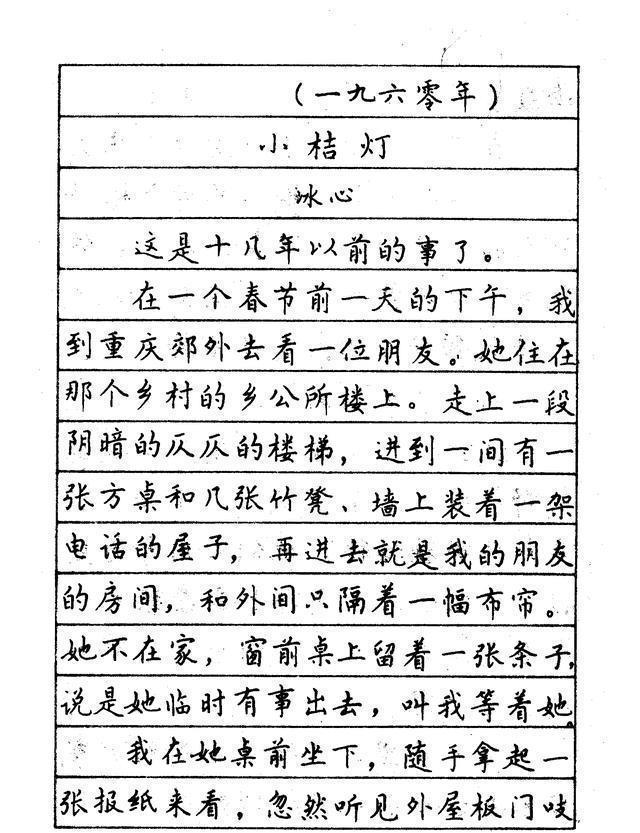 （一九六零年）
小桔灯
冰心
这是十几年以前的事了。
在一个春节前一天的下午，我
到重庆郊外去看一位朋友。她住在
那个乡村的乡公所楼上。走上一段
阴暗的仄仄的楼梯，进到一间有一
张方桌和几张竹凳、墙上装着一架
电话的屋子，再进去就是我的朋友
的房间，和外间只隔着一幅布帘。
她不在家，窗前桌上留着一张条子，
说是她临时有事出去，叫我等着她。
我在她桌前坐下，随手拿起一
张报纸来看，忽然听见外屋板门吱